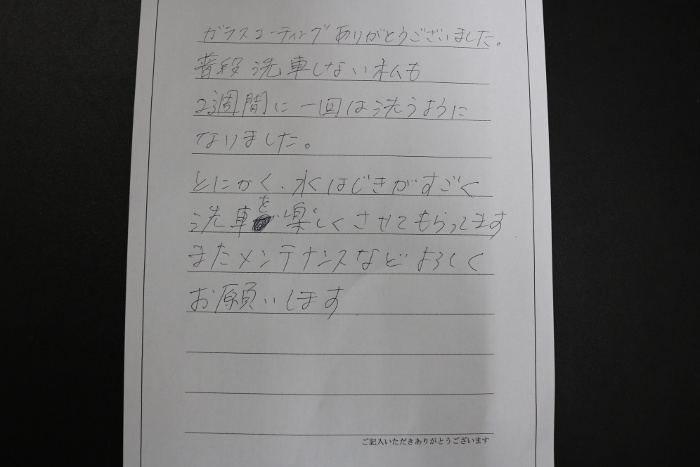 ガラスコーティングありがとうございました。
普段洗車しない私も
2週間に一回は洗うように
なりました。
とにかく、水はじきがすごく
洗車を楽しくさせてもらってます
またメンテナンスなどよろしく
お願いします
ご記入いただきありがとうございます